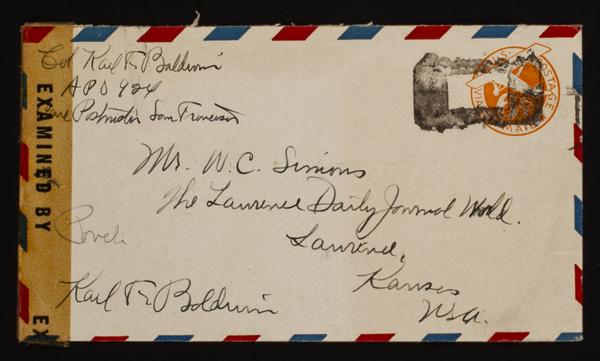 Col Karl F. Baldwin
APO 924
Care Postmaster San Francisco
EXAMINED BY
EX
POSTAGE
MAIL
Mr. W. C. Simons
The Lawrence Daily Journal World.
Lawrence,
Kansas
USA.
Karl F. Baldwin